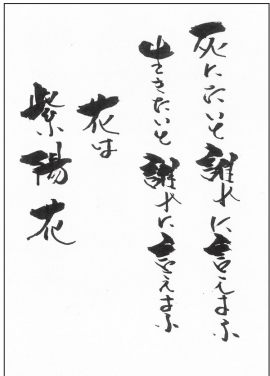 死にたいと誰れに言えよふ
生きたいと誰れに言えよふ
花は
紫陽花